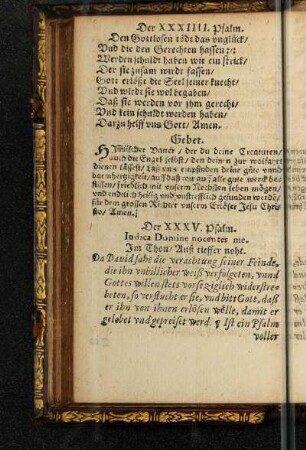 Der XXXIIII. Psalm.
Den Gottlosen tödt das vnglück/
Vnd die den Gerechten hassen :/:
Werden schuldt haben wie ein strick/
Der sie zusam wirdt fassen/
Gott erlößt die Seel seiner knecht/
Vnd wirdt sie wol begaben/
Daß sie werden vor jhm gerecht/
Vnd kein schuldt werden haben/
Darzu helff vns Gott/ Amen.
Gebet.
Himlischer Vatter/ der du deine Creaturen/
auch die Engel selbst/ den deinen zur wolfart
dienen lässest/ Laß vns empfinden deine güte vnnd
barmhertzigkeit/ auff daß wir zu aller gute
flissen/ friedlich mit vnserm Nechsten leben mögen/
vnd endtlich heilig vnd vnsträfflich gefunden werdẽ/
für dem grossen Richter vnserm Erlöser Jesu Chri-
sto/ Amen.]
Der XXXV. Psalm.
Iudica Domine nocentes me.
Im Thon/ Auß tieffer noht.
Da Dauid sahe die verachtung seiner Feinde,
die ihn vnbillicher weiß verfolgeten, vnnd
Gottes willen stets vorsetziglich widerstre-
beten, so verflucht er sie, vnd bitt Gott, daß
er ihn von ihnen erlösen wölle, damit er
gelobet vnd gepreiset werd. ¶ Ist ein Psalm
voller